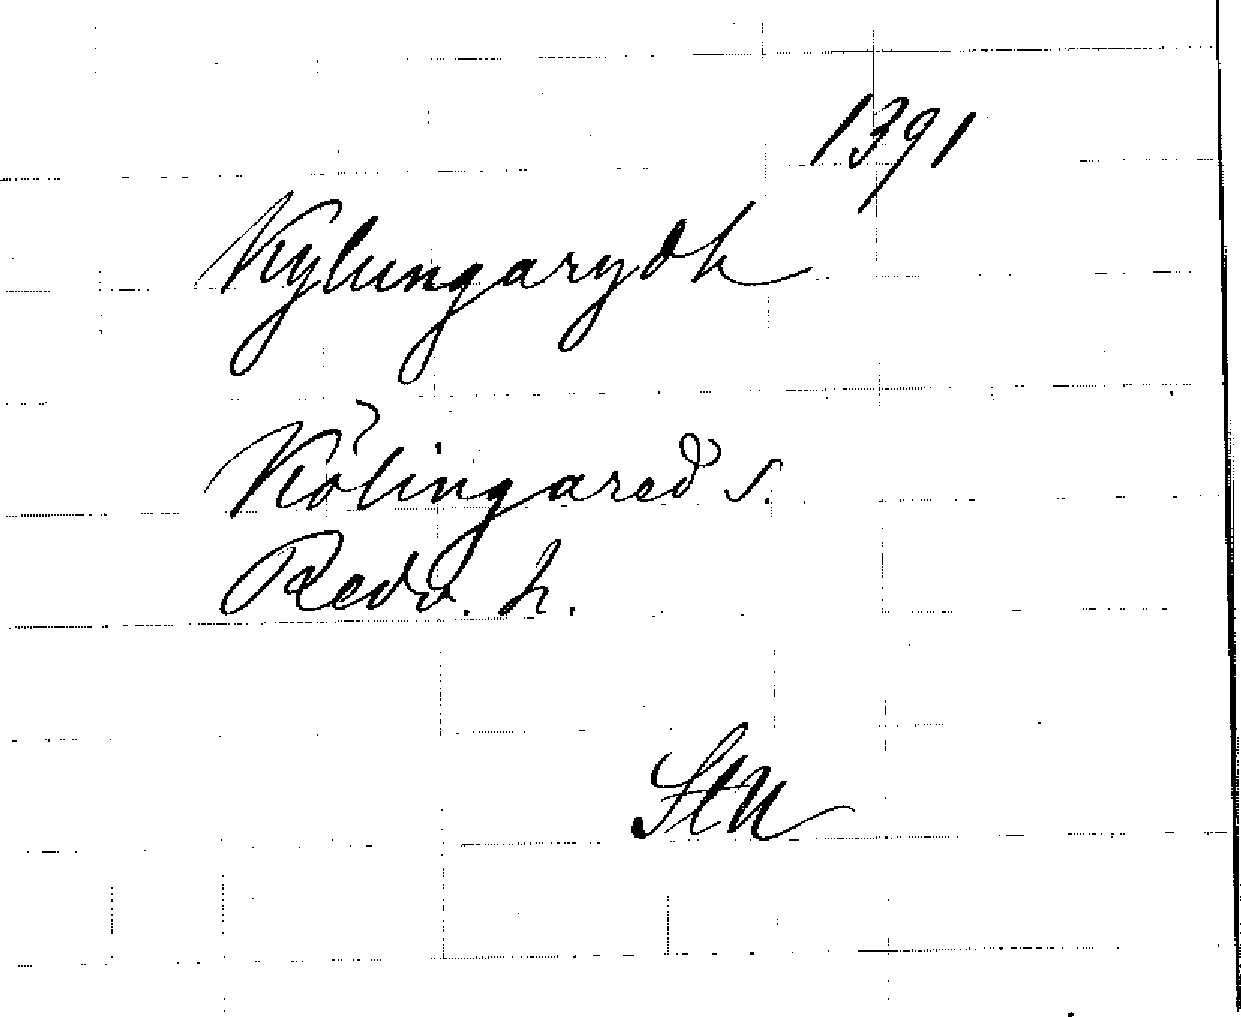 1391
Kylungarydh
Kölingared s.
Redv. h.
StN